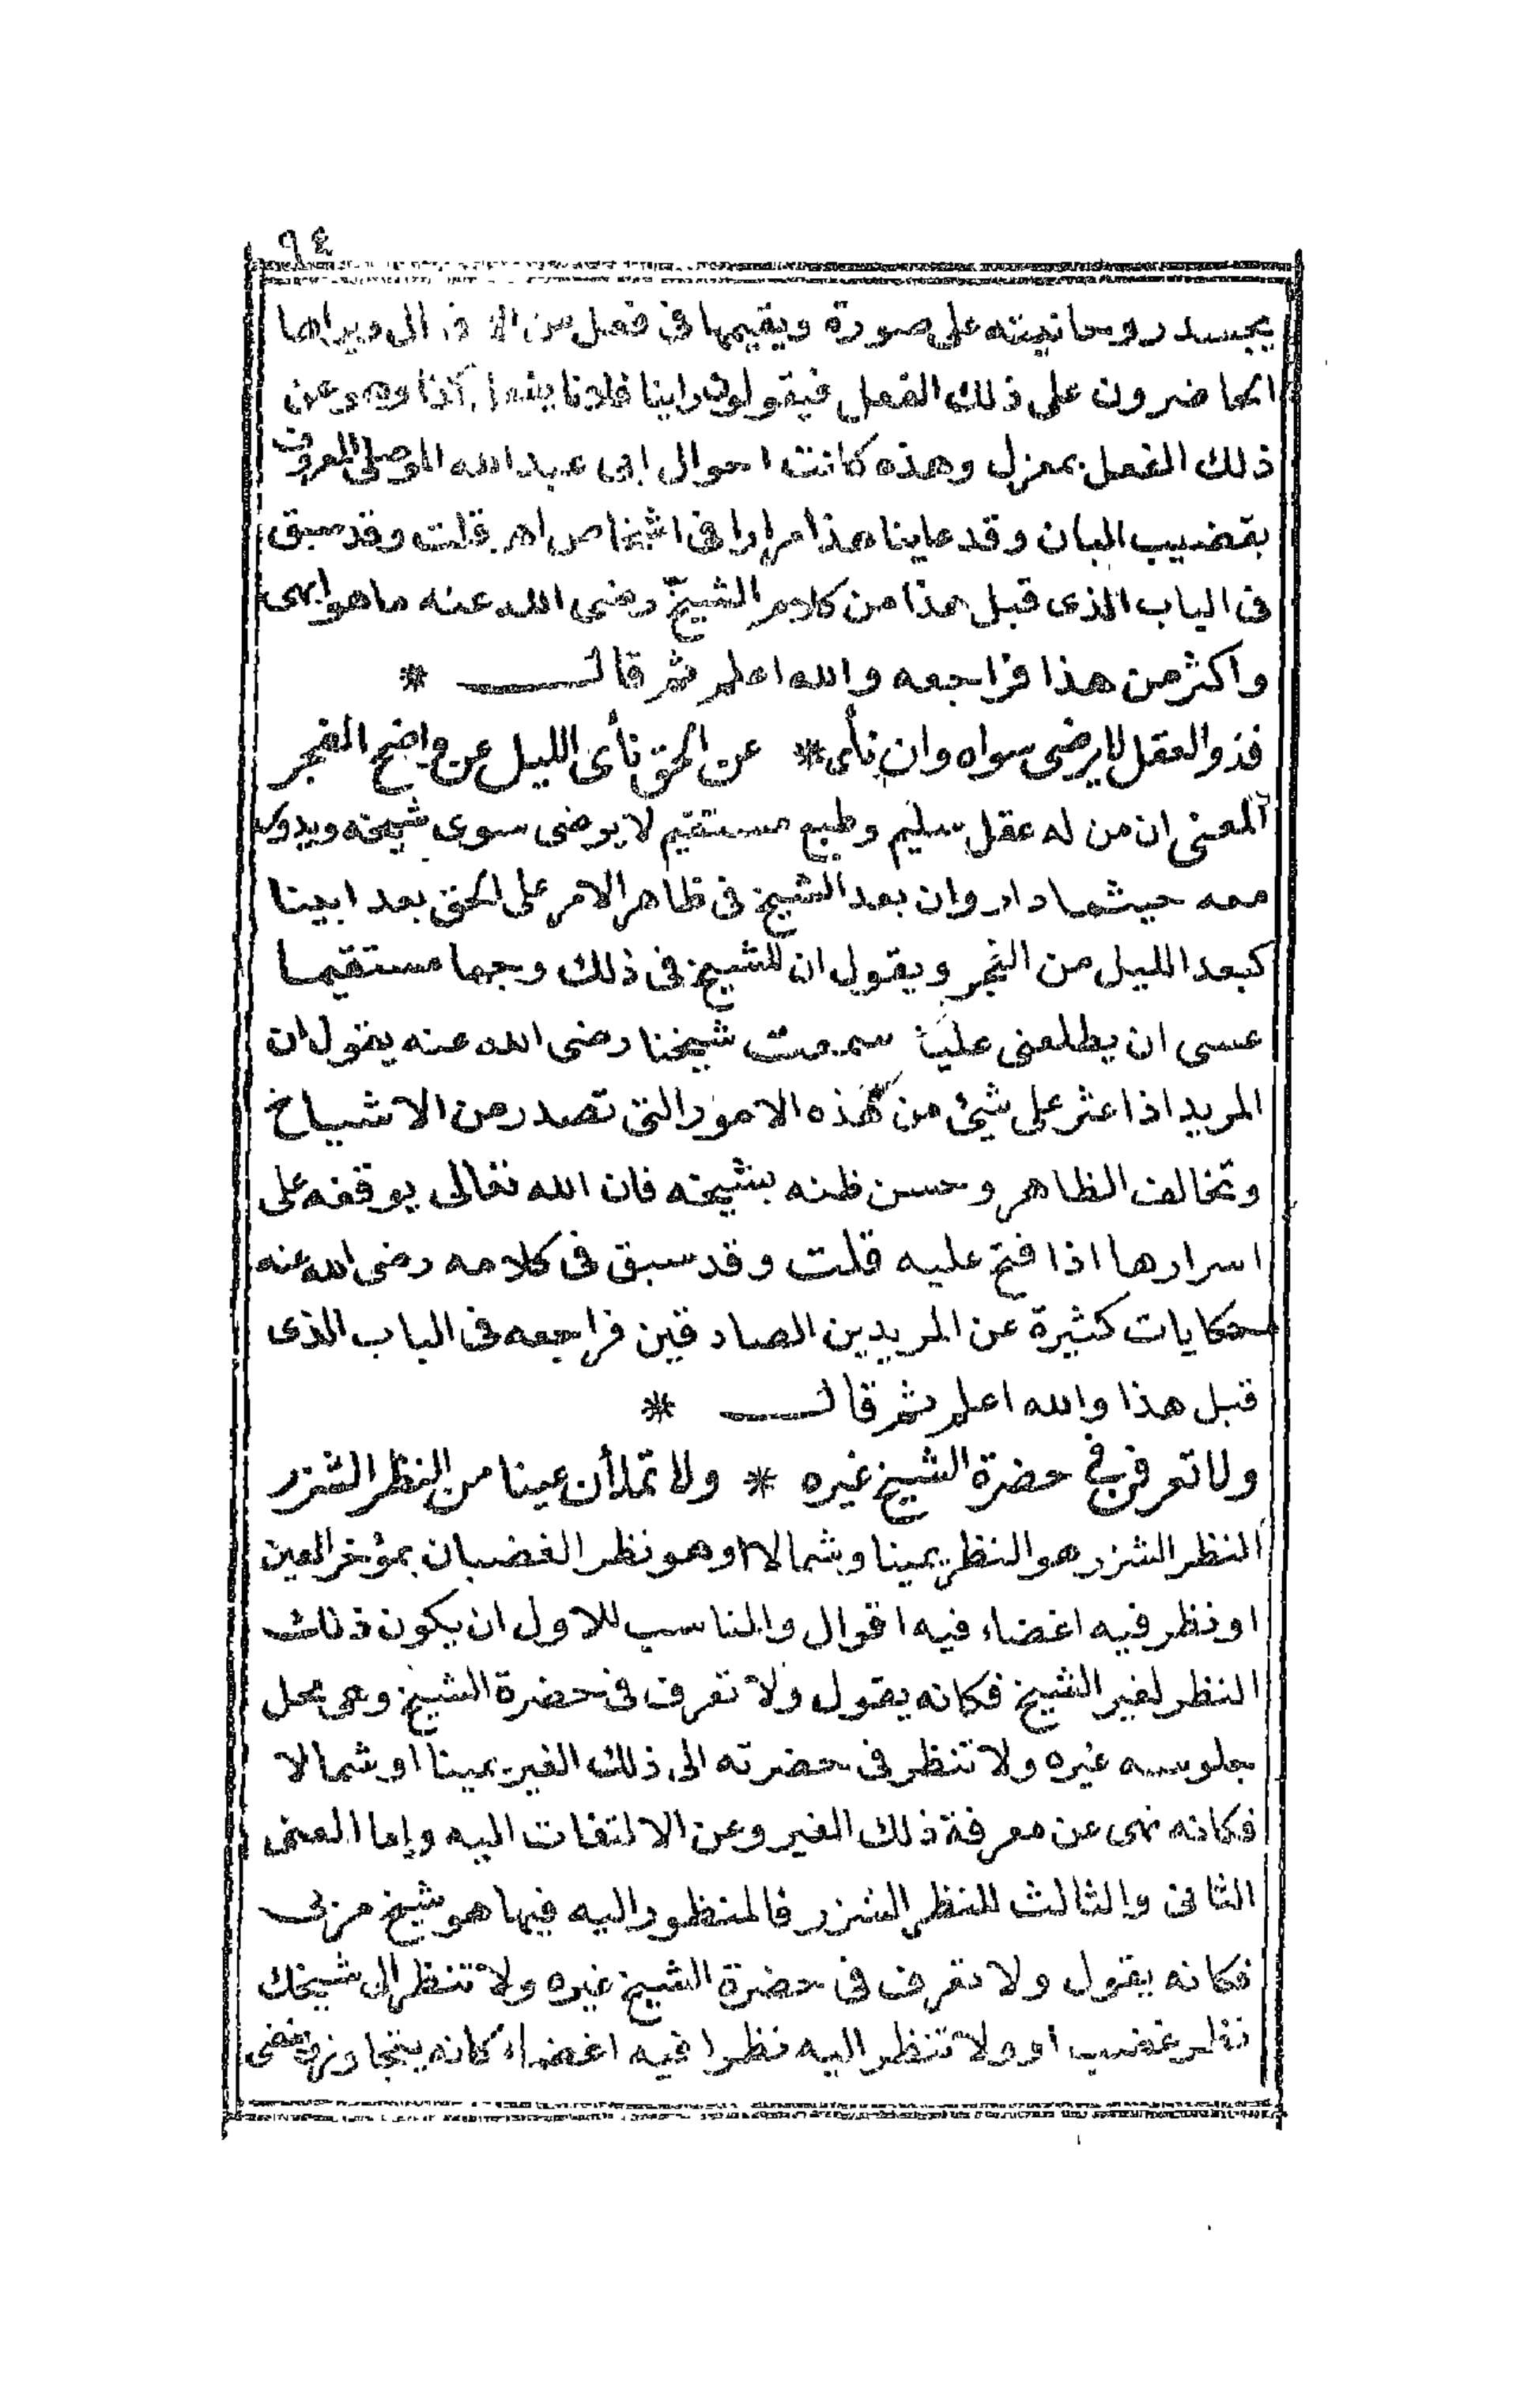 ٩٤
يجسد روحانيته على صورة ويقيمها فى فعل من الافعال ويراها
الحاضرون على ذلك الفعل فيقولون راينا فلانا يفعل كذا وهو عن
ذلك الفعل بمعزل وهذه كانت احوال ابى عبد الله الموصلى المعروف
بقضيب البان وقد عاينا هذا مرارا فى اشخاص اهـ قلت وقد سبق
فى الباب الذى قبل هذا من كلام الشيخ رضى الله عنه ما هو ابهى
واكثر من هذا فراجعه والله اعلم ثم قال *
فذو العقل لا يرضى سواه وان نأى * عن الحق نأى الليل عن واضح الفجر
المعنى ان من له عقل سليم وطبع مستقيم لا يرضى سوى شيخه ويدور
معه حيثما دار وان بعد الشيخ فى ظاهر الامر على الحق بعدا بينا
كبعد الليل من الفجر ويقول ان للشيخ فى ذلك وجها مستقيما
عسى ان يطلعنى عليه سمعت شيخنا رضى الله عنه يقول ان
المريد اذا عثر على شيئ من هذه الامور التى تصدر من الاشياخ
وتخالف الظاهر وحسن ظنه بشيخه فان الله تعالى يوقفه على
اسرارها اذا فتح عليه قلت وقد سبق فى كلامه رضى الله عنه
حكايات كثيرة عن المريدين الصادقين فراجعه فى الباب الذى
قبل هذا والله اعلم ثم قال *
ولا تعرفن فى حضرة الشيخ غيره * ولا تملأن عينا من النظر الشزر
النظر الشزر هو النظر يمينا وشمالا او هو نظر الغضبان بمؤخر العين
او نظر فيه اغضاء فيه اقوال والمناسب للاول ان يكون ذلك
النظر لغير الشيخ فكانه يقول ولا تعرف فى حضرة الشيخ وهى محل
جلوسه غيره ولا تنظر فى حضرته الى ذلك الغير يمينا او شمالا
فكانه نهى عن معرفة ذلك الغير وعن الالتفات اليه واما المعنى
الثانى والثالث للنظر الشزر فالمنظور اليه فيها هو شيخ مربى
فكانه يقول ولا تعرف فى حضرة الشيخ غيره ولا تنظر الى شيخك
نظر غضب او ولا تنظر اليه نظرا فيه اغضاء كانه